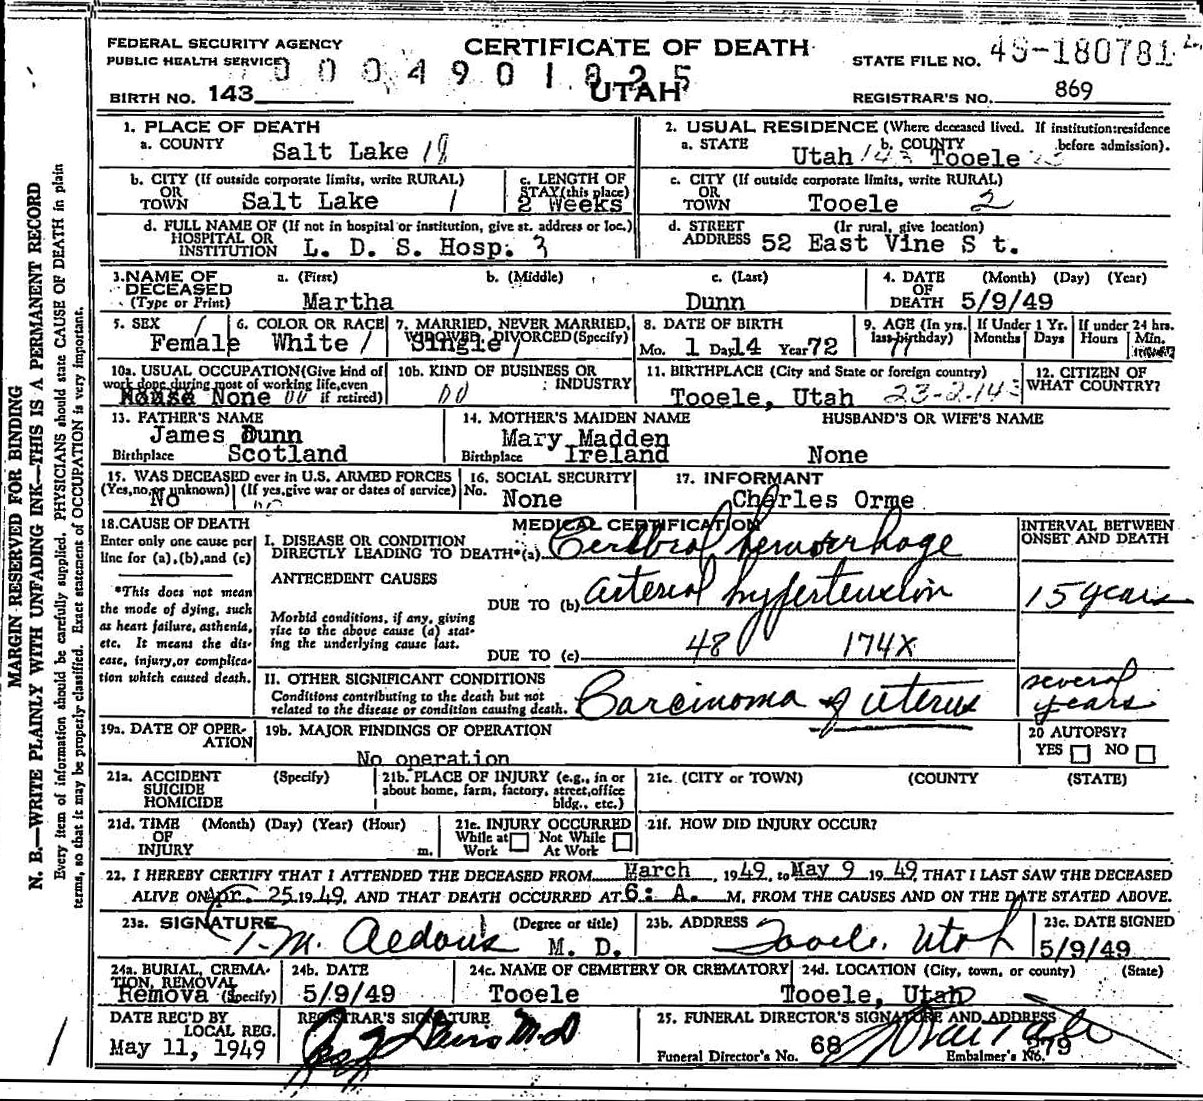 FEDERAL SECURITY AGENCY
PUBLIC HEALTH SERVICE
CERTIFICATE OF DEATH
UTAH
0004901825
STATE FILE NO. 49-180781
BIRTH NO. 143
REGISTRAR'S NO. 869
MARGIN RESERVED FOR BINDING
N. B.—WRITE PLAINLY WITH UNFADING INK—THIS IS A PERMANENT RECORD
Every item of information should be carefully supplied. PHYSICIANS should state CAUSE OF DEATH in plain
terms, so that it may be properly classified. Exact statement of OCCUPATION is very important.
1. PLACE OF DEATH
a. COUNTY Salt Lake 18
2. USUAL RESIDENCE (Where deceased lived. If institution: residence before admission).
a. STATE Utah 143 b. COUNTY Tooele 23
b. CITY (If outside corporate limits, write RURAL) OR TOWN Salt Lake 1
c. LENGTH OF STAY (this place) 2 Weeks
c. CITY (If outside corporate limits, write RURAL) OR TOWN Tooele 2
d. FULL NAME OF (If not in hospital or institution, give st. address or loc.) HOSPITAL OR INSTITUTION L. D. S. Hosp. 3
d. STREET ADDRESS (If rural, give location) 52 East Vine S t.
3. NAME OF DECEASED (Type or Print)
a. (First) Martha
b. (Middle)
c. (Last) Dunn
4. DATE OF DEATH (Month) (Day) (Year) 5/9/49
5. SEX Female 1
6. COLOR OR RACE White 1
7. MARRIED, NEVER MARRIED, WIDOWED, DIVORCED (Specify) Single 1
8. DATE OF BIRTH Mo. 1 Da. 14 Year 72
9. AGE (In yrs. last birthday) 77
If Under 1 Yr. Months Days
If under 24 hrs. Hours Min.
10a. USUAL OCCUPATION (Give kind of work done during most of working life, even if retired) None 00
10b. KIND OF BUSINESS OR INDUSTRY 00
11. BIRTHPLACE (City and State or foreign country) Tooele, Utah 23-2-143
12. CITIZEN OF WHAT COUNTRY?
13. FATHER'S NAME James Dunn
Birthplace Scotland
14. MOTHER'S MAIDEN NAME Mary Madden
Birthplace Ireland
HUSBAND'S OR WIFE'S NAME
None
15. WAS DECEASED ever in U.S. ARMED FORCES
(Yes, no, or unknown) No (If yes, give war or dates of service) no
16. SOCIAL SECURITY No. None
17. INFORMANT
Charles Orme
18. CAUSE OF DEATH
Enter only one cause per line for (a), (b), and (c)
*This does not mean the mode of dying, such as heart failure, asthenia, etc. It means the disease, injury, or complication which caused death.
MEDICAL CERTIFICATION
I. DISEASE OR CONDITION DIRECTLY LEADING TO DEATH*(a) Cerebral hemorrhage
INTERVAL BETWEEN ONSET AND DEATH
ANTECEDENT CAUSES
DUE TO (b) arterial hypertension 15 years
Morbid conditions, if any, giving rise to the above cause (a) stating the underlying cause last.
DUE TO (c) 48 174X
II. OTHER SIGNIFICANT CONDITIONS
Conditions contributing to the death but not related to the disease or condition causing death.
Carcinoma of uterus several years
19a. DATE OF OPERATION
19b. MAJOR FINDINGS OF OPERATION
No operation
20 AUTOPSY?
YES NO
21a. ACCIDENT SUICIDE HOMICIDE (Specify)
21b. PLACE OF INJURY (e.g., in or about home, farm, factory, street, office bldg., etc.)
21c. (CITY or TOWN) (COUNTY) (STATE)
21d. TIME OF INJURY (Month) (Day) (Year) (Hour) m.
21e. INJURY OCCURRED
While at Work Not While At Work
21f. HOW DID INJURY OCCUR?
22. I HEREBY CERTIFY THAT I ATTENDED THE DECEASED FROM March, 1949, to May 9 1949, THAT I LAST SAW THE DECEASED
ALIVE ON Apr. 25, 1949, AND THAT DEATH OCCURRED AT 6: A. M., FROM THE CAUSES AND ON THE DATE STATED ABOVE.
23a. SIGNATURE T. M. Aldous (Degree or title) M. D.
23b. ADDRESS Tooele, Utah
23c. DATE SIGNED 5/9/49
24a. BURIAL, CREMATION, REMOVAL (Specify) Remova
24b. DATE 5/9/49
24c. NAME OF CEMETERY OR CREMATORY Tooele
24d. LOCATION (City, town, or county) (State) Tooele, Utah
DATE REC'D BY LOCAL REG. May 11, 1949
REGISTRAR'S SIGNATURE
25. FUNERAL DIRECTOR'S SIGNATURE AND ADDRESS
Funeral Director's No. 68 Embalmer's No. 279